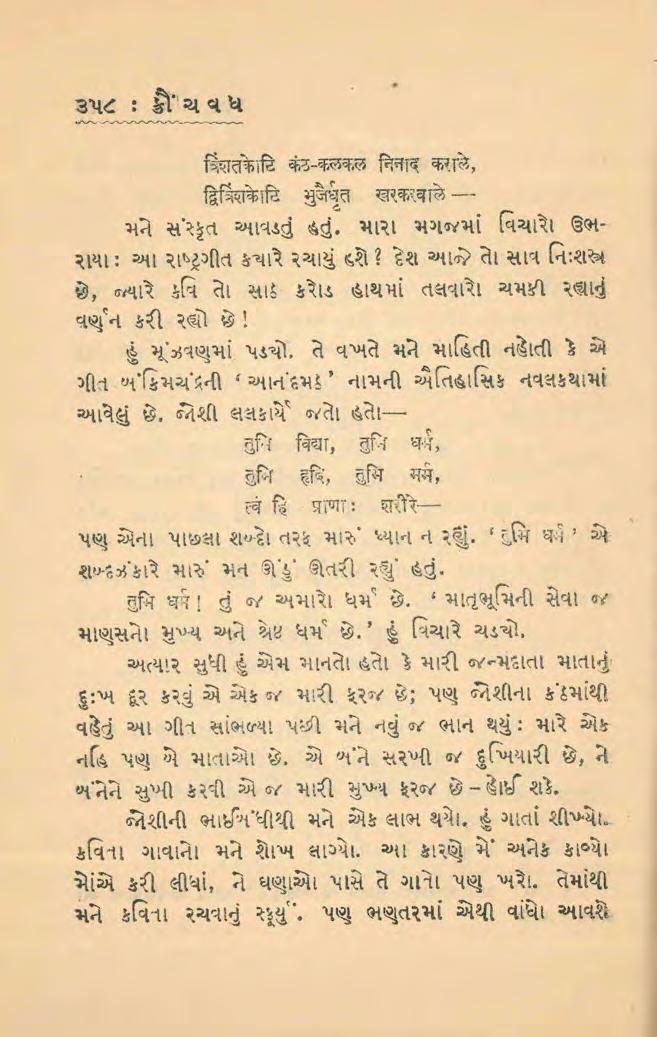 ૩૫૮ : ક્રૌંચવધ
त्रिंशतकोटि कंठ-कलकल निनाद कराले,
द्वित्रिंशकोटि भुजैर्धृत खरकरवाले —
મને સંસ્કૃત આવડતું હતું. મારા મગજમાં વિચારો ઉભ-
રાયા: આ રાષ્ટ્રગીત ક્યારે રચાયું હશે? દેશ આજે તો સાવ નિઃશસ્ત્ર
છે, જ્યારે કવિ તો સાઠ કરોડ હાથમાં તલવારો ચમકી રહ્યાનું
વર્ણન કરી રહ્યો છે!
હું મૂંઝવણમાં પડ્યો. તે વખતે મને માહિતી નહોતી કે એ
ગીત બંકિમચંદ્રની ‘આનંદમઠ’ નામની ઐતિહાસિક નવલકથામાં
આવેલું છે. જોશી લલકાર્યે જતો હતો—
तुमि विद्या, तुमि धर्म,
तुमि हृदि, तुमि मर्म,
त्वं हि प्राणाः शरीरे—
પણ એના પાછલા શબ્દો તરફ મારું ધ્યાન ન રહ્યું. ‘तुमि धर्म’ એ
શબ્દઝંકારે મારું મન ઊંડું ઊતરી રહ્યું હતું.
तुमि धर्म! તું જ અમારો ધર્મ છે. ‘માતૃભૂમિની સેવા જ
માણસનો મુખ્ય અને શ્રેષ્ઠ ધર્મ છે.’ હું વિચારે ચડ્યો.
અત્યાર સુધી હું એમ માનતો હતો કે મારી જન્મદાતા માતાનું
દુઃખ દૂર કરવું એ એક જ મારી ફરજ છે; પણ જોશીના કંઠમાંથી
વહેતું આ ગીત સાંભળ્યા પછી મને નવું જ ભાન થયું: મારે એક
નહિ પણ બે માતાઓ છે. એ બંને સરખી જ દુખિયારી છે, ને
બંનેને સુખી કરવી એ જ મારી મુખ્ય ફરજ છે – હોઈ શકે.
જોશીની ભાઈબંધીથી મને એક લાભ થયો. હું ગાતાં શીખ્યો.
કવિતા ગાવાનો મને શોખ લાગ્યો. આ કારણે મેં અનેક કાવ્યો
મોંએ કરી લીધાં, ને ઘણાઓ પાસે તે ગાતો પણ ખરો. તેમાંથી
મને કવિતા રચવાનું સ્ફૂર્યું. પણ ભણતરમાં એથી વાંધો આવશે